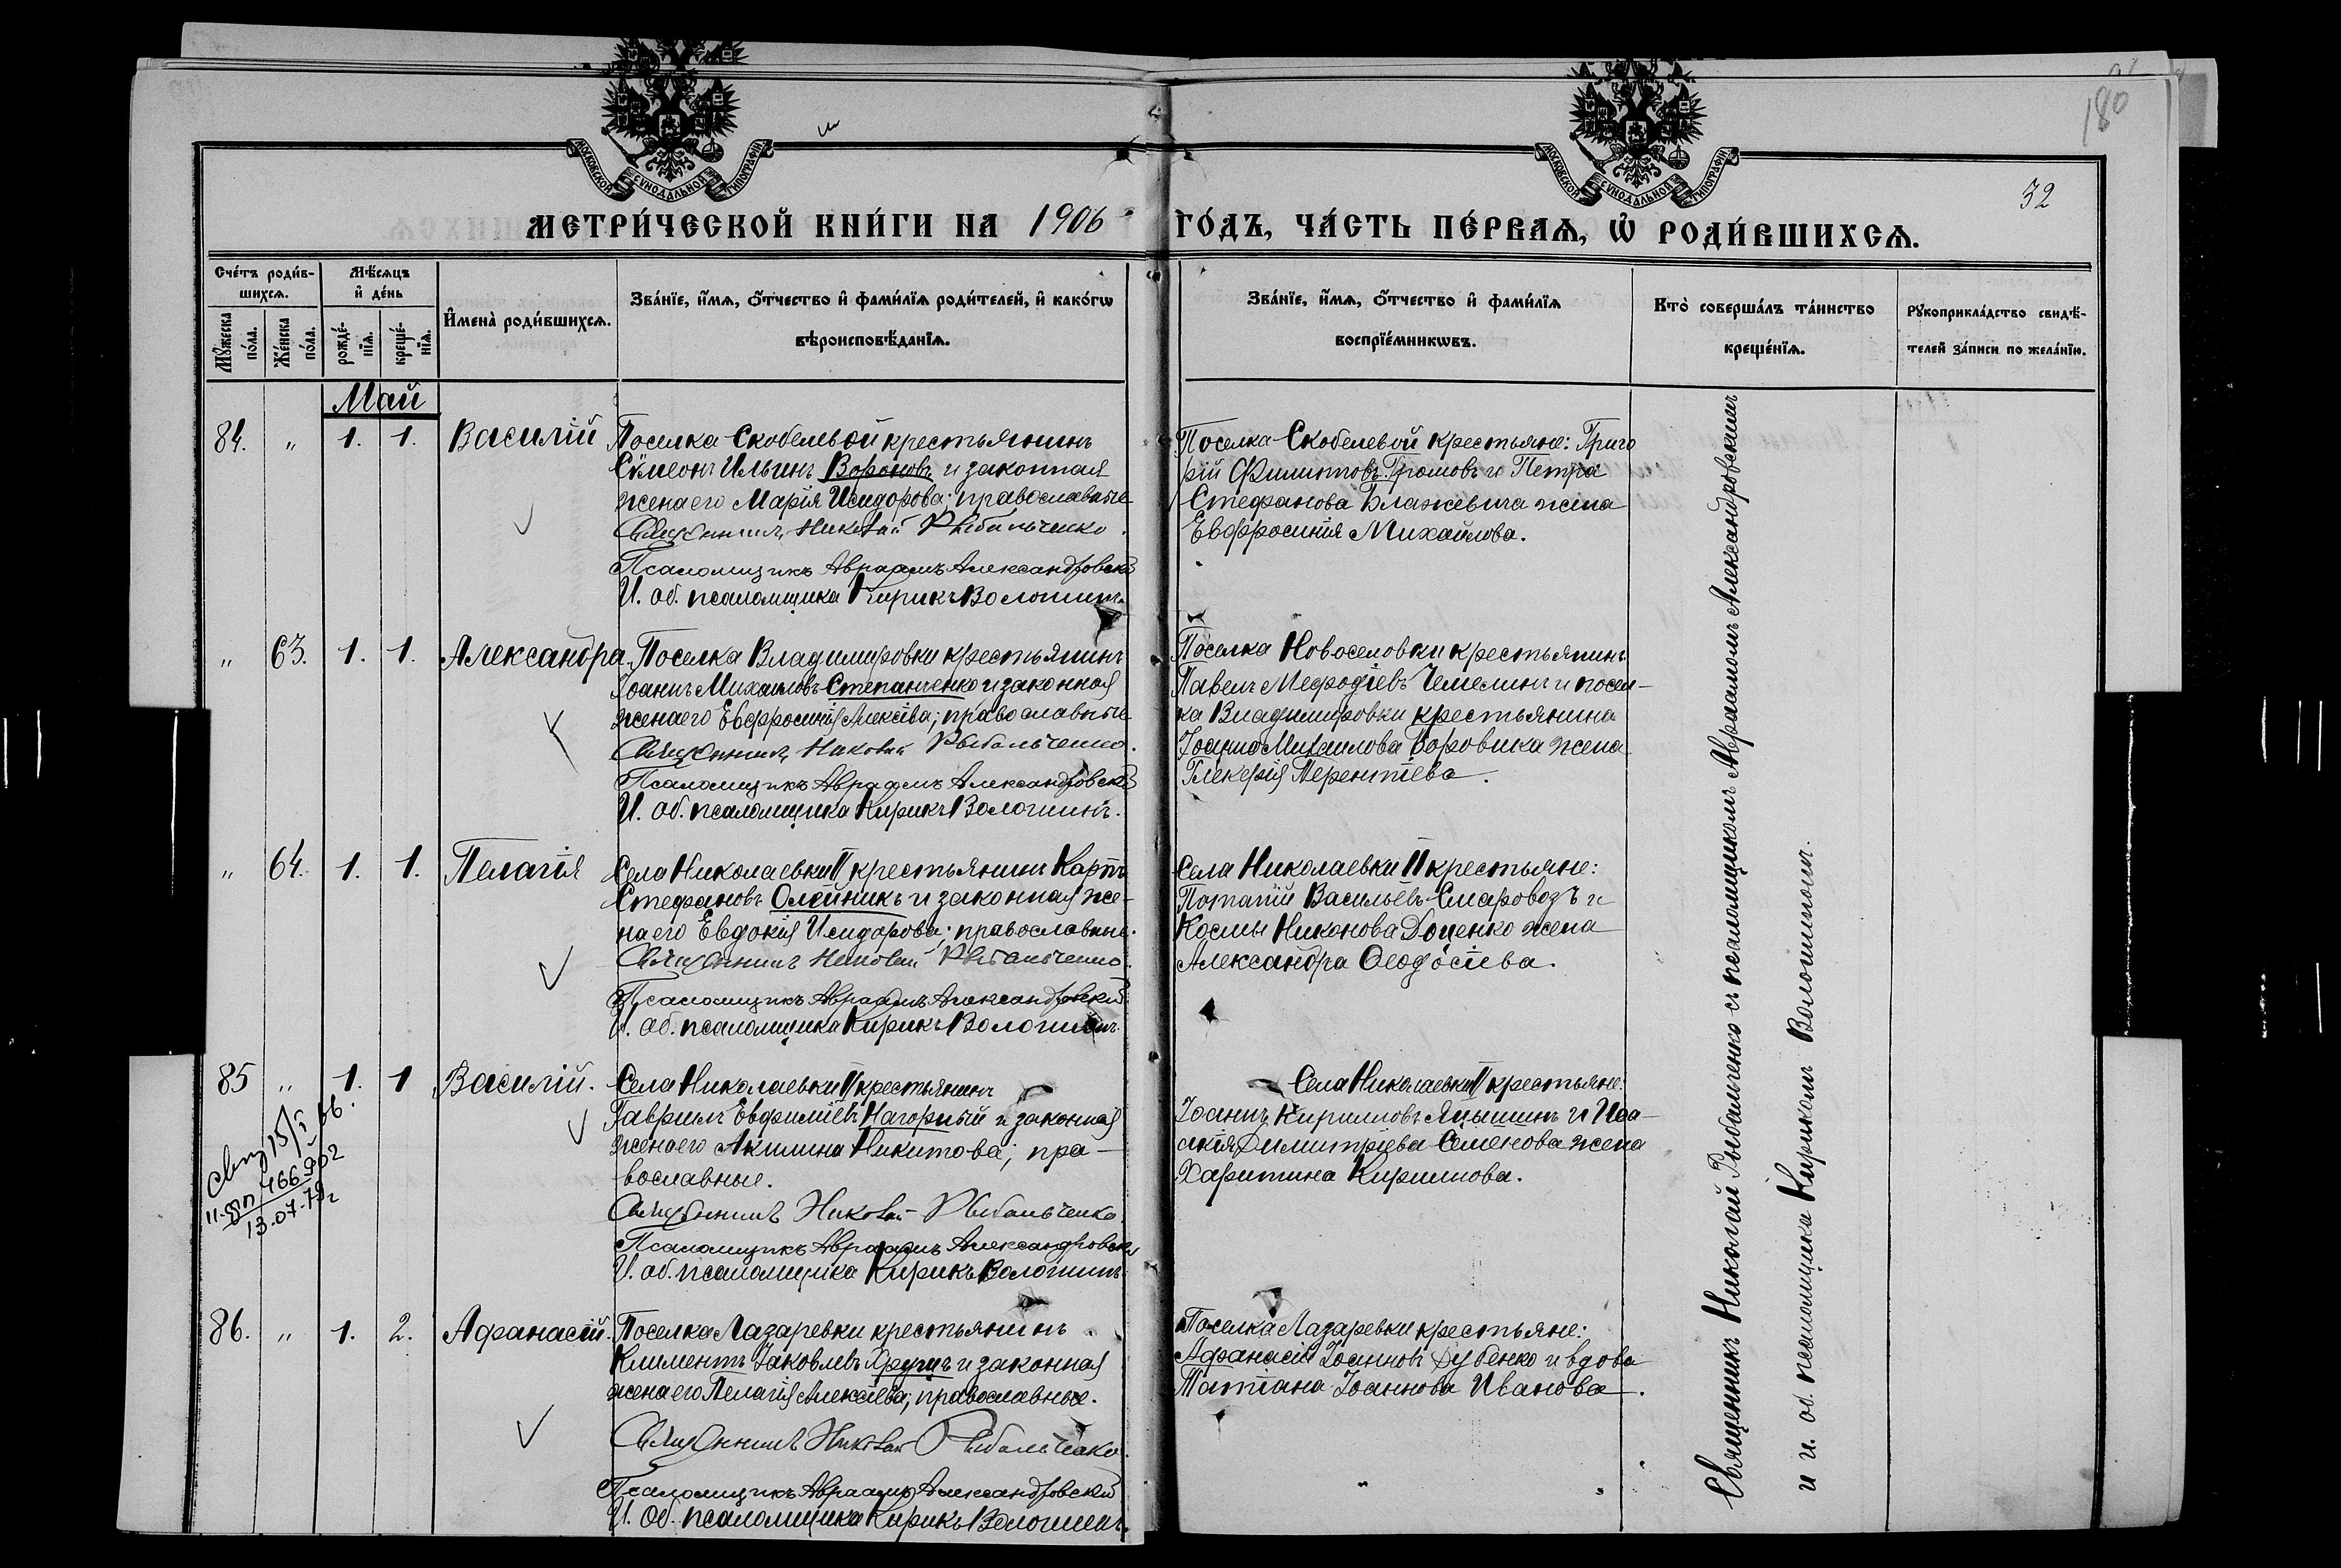 180
32
МОСКОВСКОЙ СѴНОДАЛЬНОЙ ТИПОГРАФІИ
МОСКОВСКОЙ СѴНОДАЛЬНОЙ ТИПОГРАФІИ
МЕТРИ́ЧЕСКОЙ КНИ́ГИ НА 1906 ГО́ДЪ, ЧА́СТЬ ПЕ́РВАѦ, Ѽ РОДИ́ВШИХСѦ.
Сче́тъ роди́в-
шихсѧ.
Мꙋ́жеска по́ла.
Же́нска по́ла.
Мѣ́сѧцъ
и҆ де́нь
рожде́-
нїѧ.
креще́-
нїѧ.
И҆мена̀ роди́вшихсѧ.
Зва́нїе, и҆́мѧ, ѻ҆́тчество и҆ фами́лїѧ роди́телей, и҆ како́гѡ
вѣроисповѣ́данїѧ.
Зва́нїе, и҆́мѧ, ѻ҆́тчество и҆ фами́лїѧ
воспрїе́мникѡвъ.
Кто̀ соверша́лъ та́инство
креще́нїѧ.
Рꙋкоприкла́дство свидѣ́-
телей за́писи по жела́нїю.
Май
84. " 1. 1. Василій
Поселка Скобелевой крестьянинъ
Сѵмеонъ Ильинъ Вороновъ и законная
жена его Марія Исидорова; православные
Священникъ Николай Рыбальченко.
Псаломщикъ Авраамъ Александровскій
И. об. псаломщика Кирикъ Волошинъ.
Поселка Скобелевой крестьяне: Григо
рій Филипповъ Громовъ и Петра
Стефанова Блажевича жена
Евфросинія Михайлова.
" 63. 1. 1. Александра
Поселка Владимировки крестьянинъ
Іоаннъ Михаиловъ Степанченко и законная
жена его Евфросинія Алексіева; православные
Священникъ Николай Рыбальченко.
Псаломщикъ Авраамъ Александровскій
И. об. псаломщика Кирикъ Волошинъ.
Поселка Новоселовки крестьянинъ
Павелъ Мефодіевъ Чемелинъ и посел-
ка Владимировки крестьянина
Іоанна Михаилова Боровика жена
Гликерія Терентіева.
" 64. 1. 1. Пелагія
Села Николаевки II крестьянинъ Карпъ
Стефановъ Олейникъ и законная же-
на его Евдокія Исидорова; православные.
Священникъ Николай Рыбальченко.
Псаломщикъ Авраамъ Александровскій
И. об. псаломщика Кирикъ Волошинъ.
Села Николаевки II крестьяне:
Потапій Васильевъ Смаровозъ и
Космы Никонова Доценко жена
Александра Ѳеодосіева.
85 " 1. 1 Василій.
Села Николаевки II крестьянинъ
Гавріилъ Евфиміевъ Нагорный и законная
жена его Акилина Никитова; пра-
вославные.
Священникъ Николай Рыбальченко.
Псаломщикъ Авраамъ Александровскій
И. об. псаломщика Кирикъ Волошинъ.
13-07-79г
Села Николаевки II крестьяне:
Іоаннъ Кирилловъ Яцышинъ и Иса-
акія Димитріева Семенова жена
Харитина Кириллова.
86. " 1. 2. Афанасій.
Поселка Лазаревки крестьянинъ
Климентъ Іаковлевъ Хрущъ и законная
жена его Пелагія Алексіева; православные.
Священникъ Николай Рыбальченко.
Псаломщикъ Авраамъ Александровскій
И. об. псаломщика Кирикъ Волошинъ.
Поселка Лазаревки крестьяне:
Афанасій Іоанновъ Дубенко и вдова
Татіана Іоаннова Иванова.
Священникъ Николай Рыбальченко съ псаломщикомъ Авраамомъ Александровскимъ
и и. об. псаломщика Кирикомъ Волошиномъ.